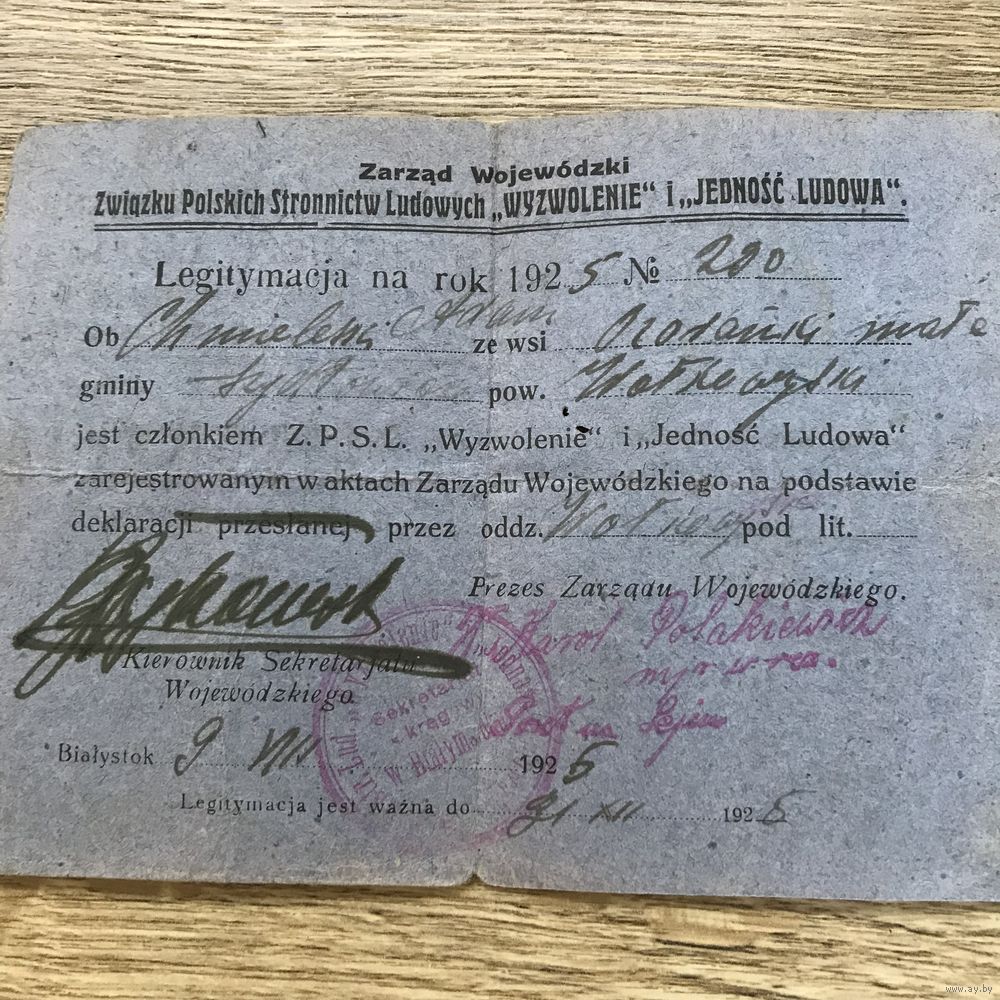 Zarząd Wojewódzki
Związku Polskich Stronnictw Ludowych „WYZWOLENIE“ i „JEDNOŚĆ LUDOWA“.
Legitymacja na rok 1925 № 200
Ob Chmielewski Adam ze wsi małe
gminy pow. Wołkowyski
jest członkiem Z. P. S. L. „Wyzwolenie“ i „Jedność Ludowa“
zarejestrowanym w aktach Zarządu Wojewódzkiego na podstawie
deklaracji przesłanej przez oddz. pod lit.
Prezes Zarządu Wojewódzkiego.
Karol Polakiewicz
Kierownik Sekretarjatu
Wojewódzkiego
Poseł na Sejm
Białystok 9 VIII 1925
Legitymacja jest ważna do 31 XII 1925
www.ay.by